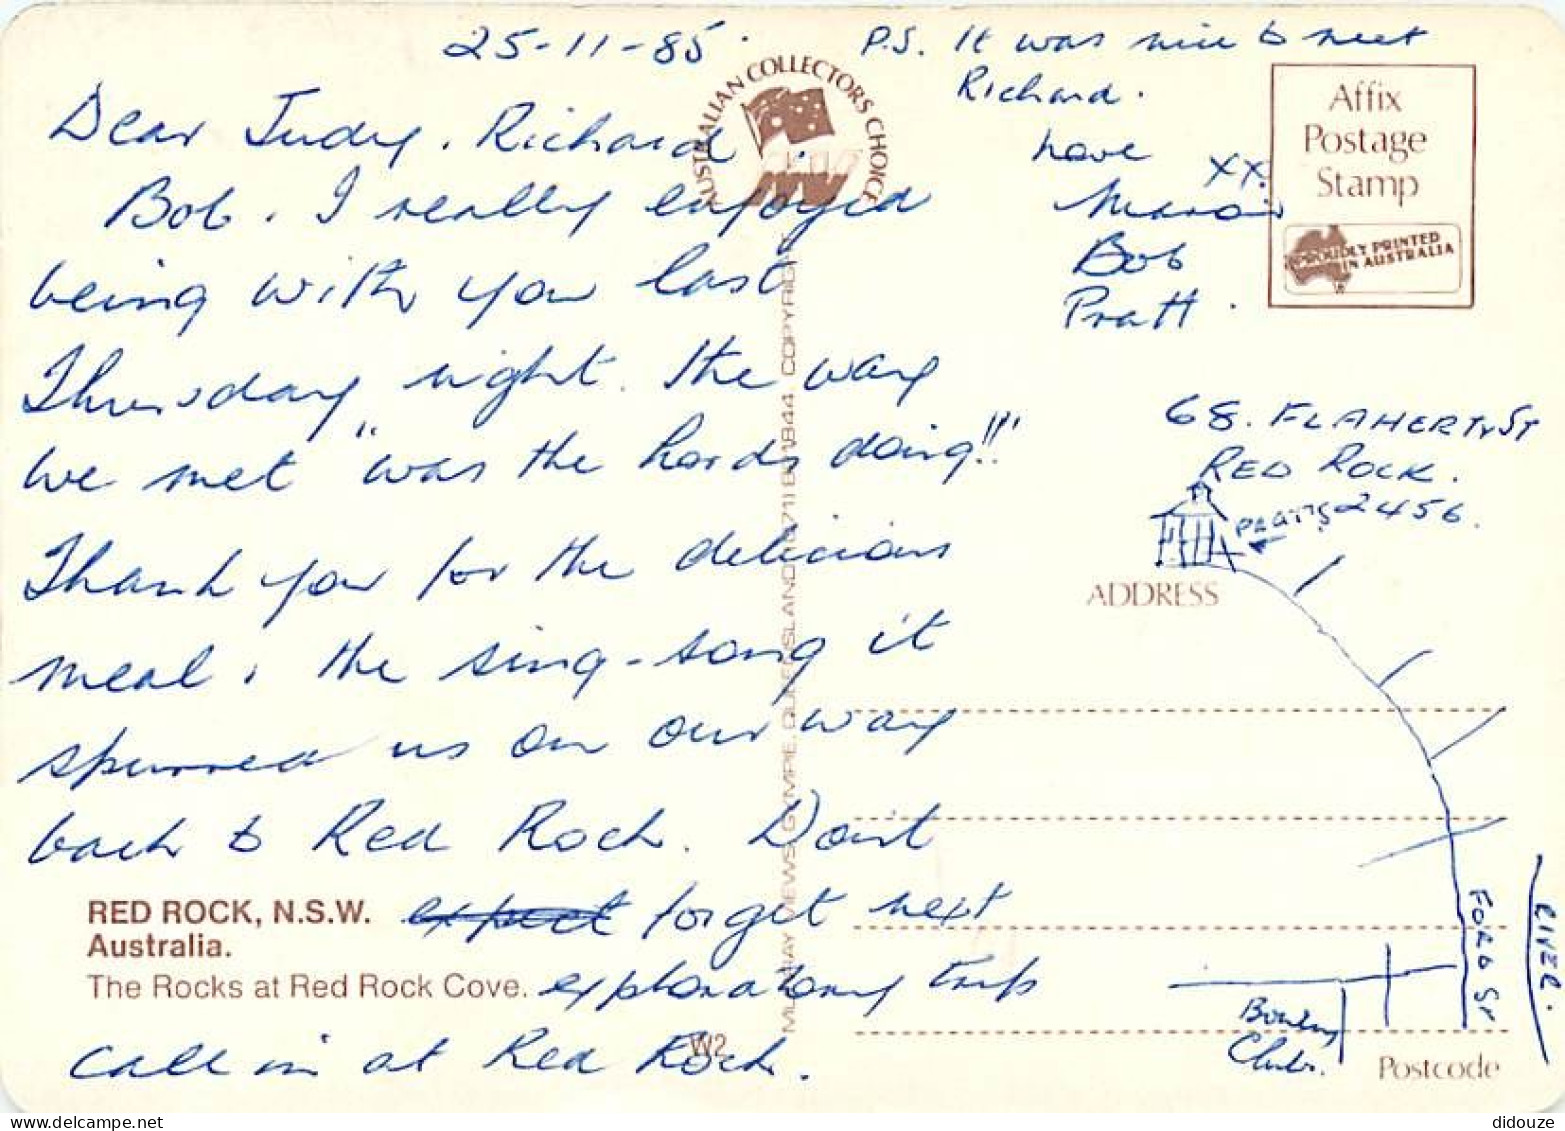 25-11-85.
Dear Judy, Richard,
Bob. I really enjoyed
being with you last
Thursday night. The way
we met "was the Lords doing!!"
Thank you for the delicious
meal, the sing-song it
spurred us on our way
back to Red Rock. Don't
expect forget next
exploratory trip
call in at Red Rock.
RED ROCK, N.S.W.
Australia.
The Rocks at Red Rock Cove.
W2
AUSTRALIAN COLLECTORS CHOICE
MURRAY VIEWS, GYMPIE, QUEENSLAND (071) 821844. COPYRIGHT
P.S. It was nice to meet
Richard.
Love
xx.
Bob
Pratt.
Affix
Postage
Stamp
PROUDLY PRINTED
IN AUSTRALIA
68. FLAHERTY ST
RED ROCK.
2456.
PRATTS
ADDRESS
FORD ST
RIVER.
Bowling
Club.
Postcode
didouze